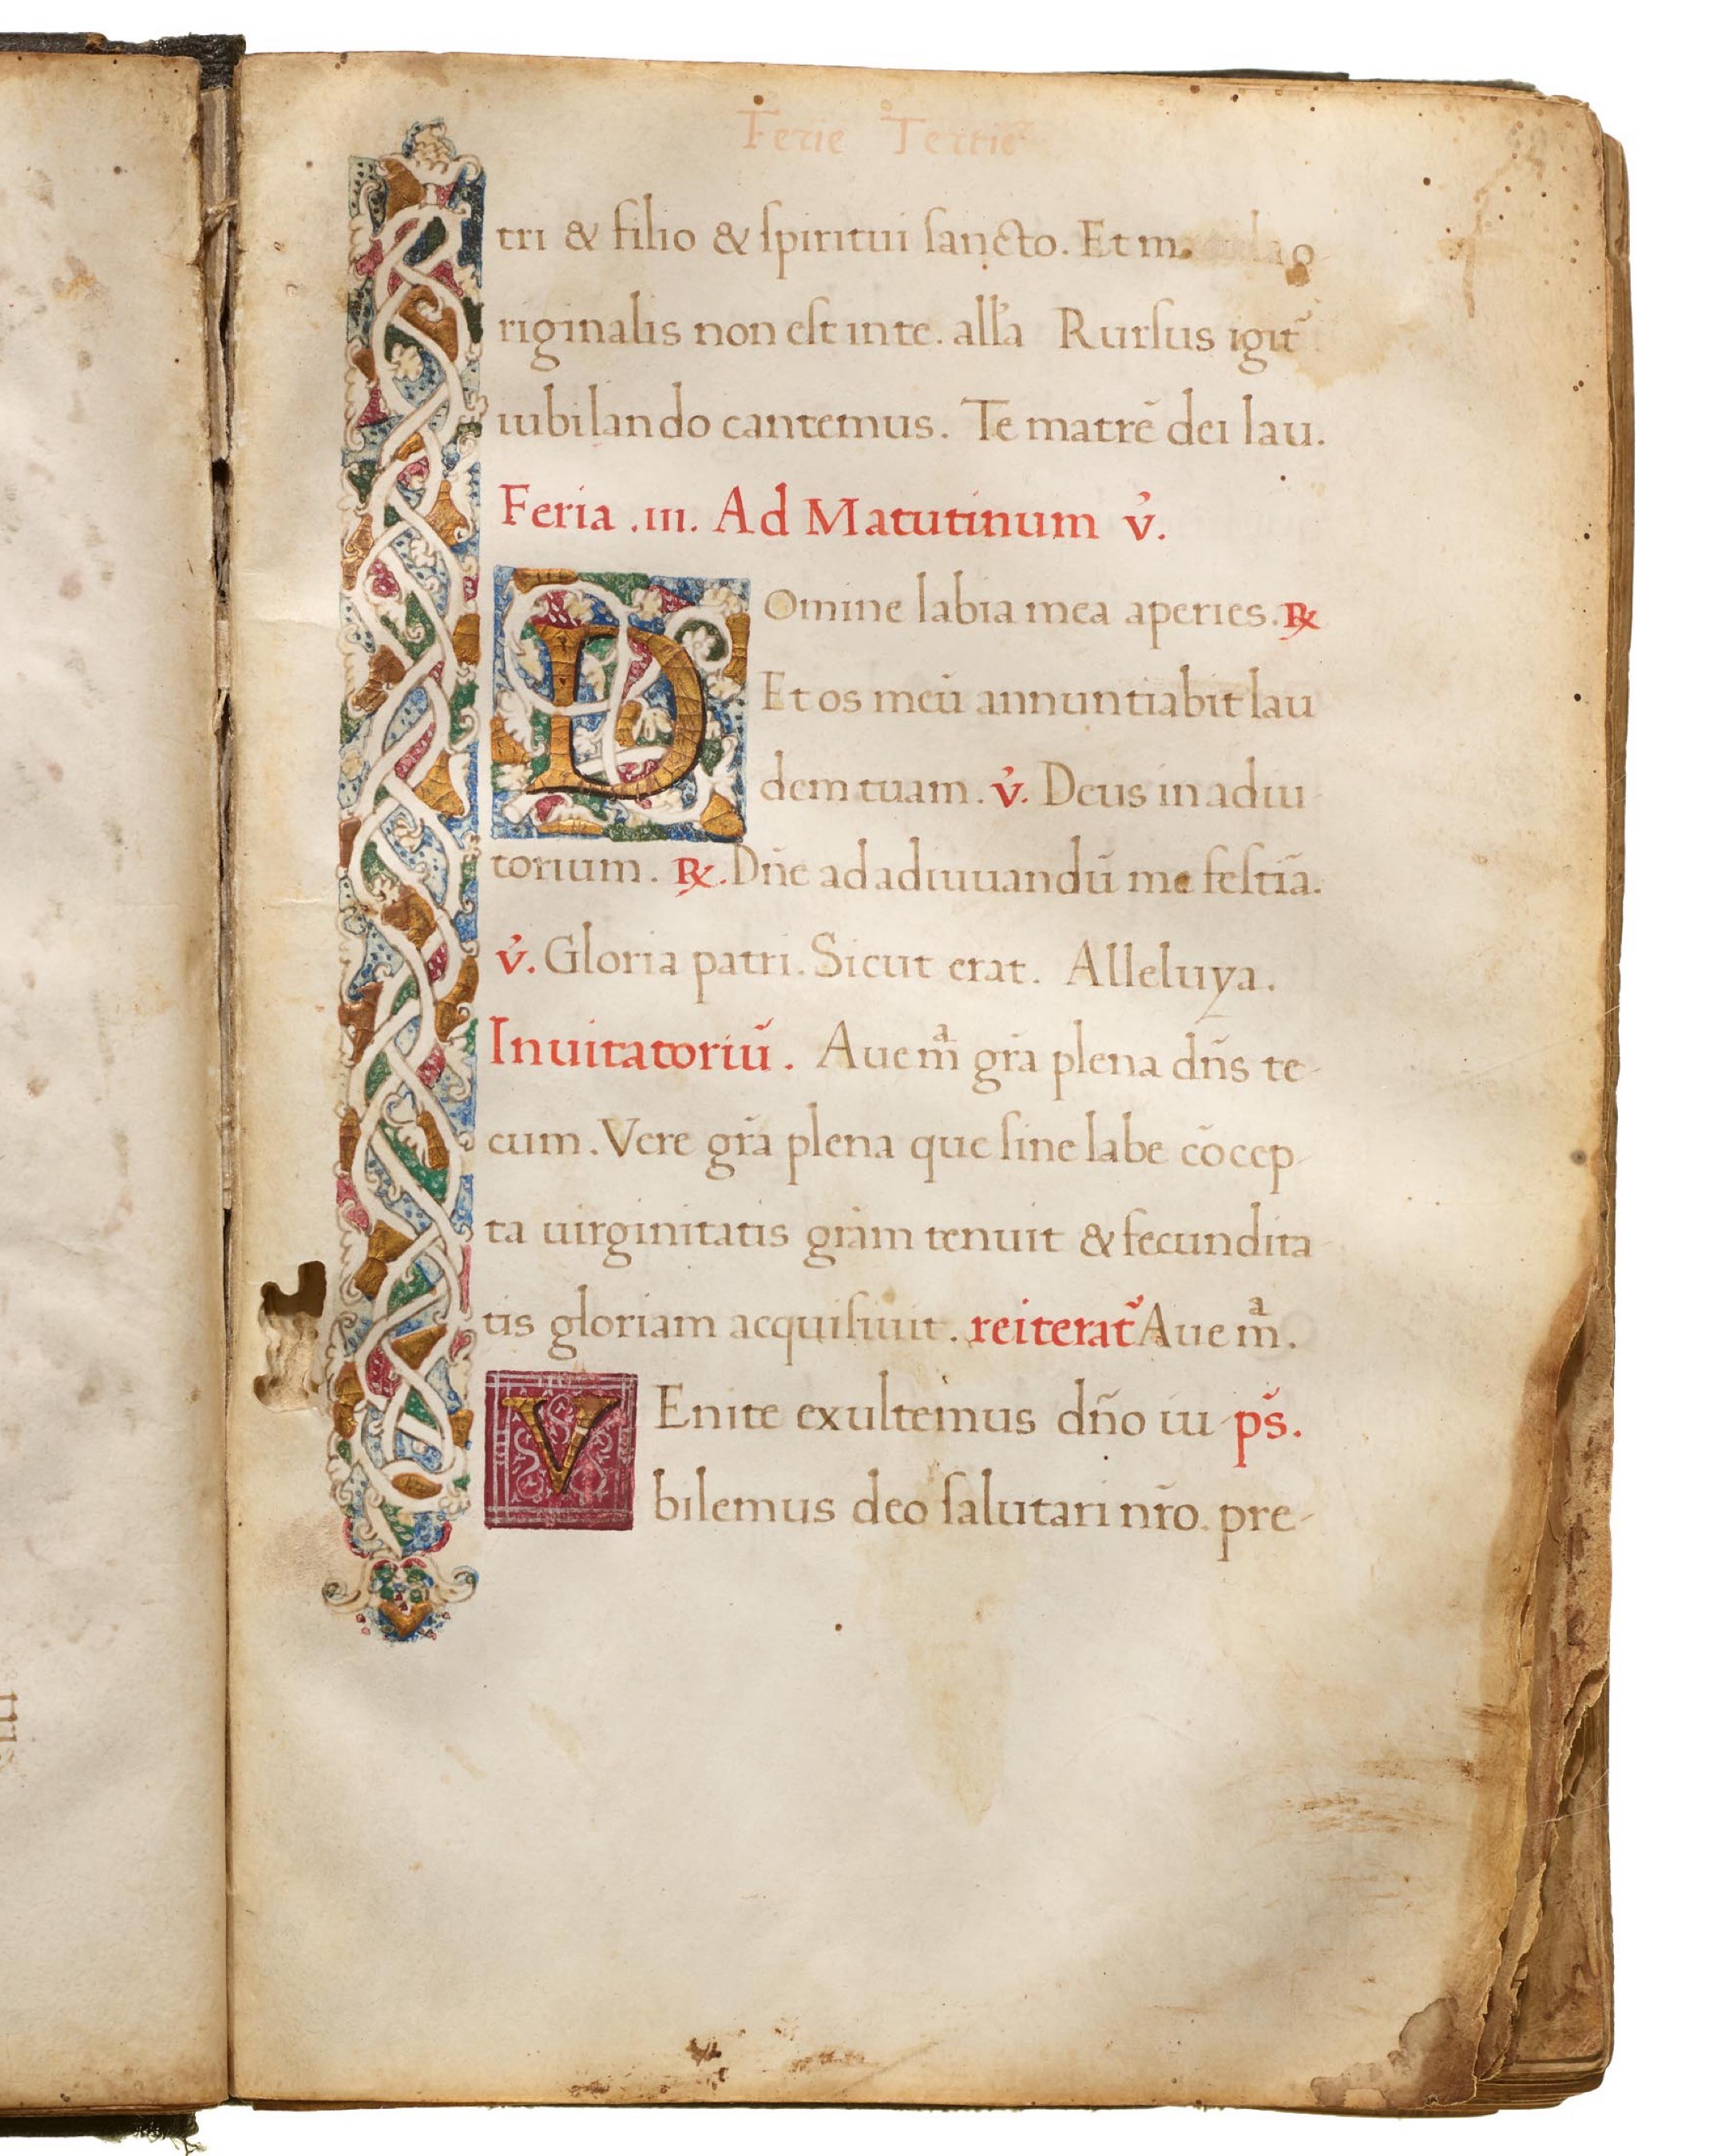 Ferie Tertie
tri & filio & ſpiritui ſancto. Et m
riginalis non eſt in te. all'a Rurſus igit̃
iubilando cantemus. Te matrẽ dei lau.
Feria .III. Ad Matutinum v̓.
DOmine labia mea aperies. ℞
Et os meũ annuntiabit lau
dem tuam. v̓. Deus in adiu
torium. ℞. Dñe ad adiuuandũ me feſtiã.
v̓. Gloria patri. Sicut erat. Alleluya.
Inuitatoriũ. Aue mͣ gr̃a plena dñs te-
cum. Vere gr̃a plena que ſine labe cõcep-
ta uirginitatis gr̃am tenuit & fecundita
tis gloriam acquiſiuit. reiterat̃ Aue mͣ.
VEnite exultemus dño iu- ps̃.
bilemus deo ſalutari nr̃o. pre-